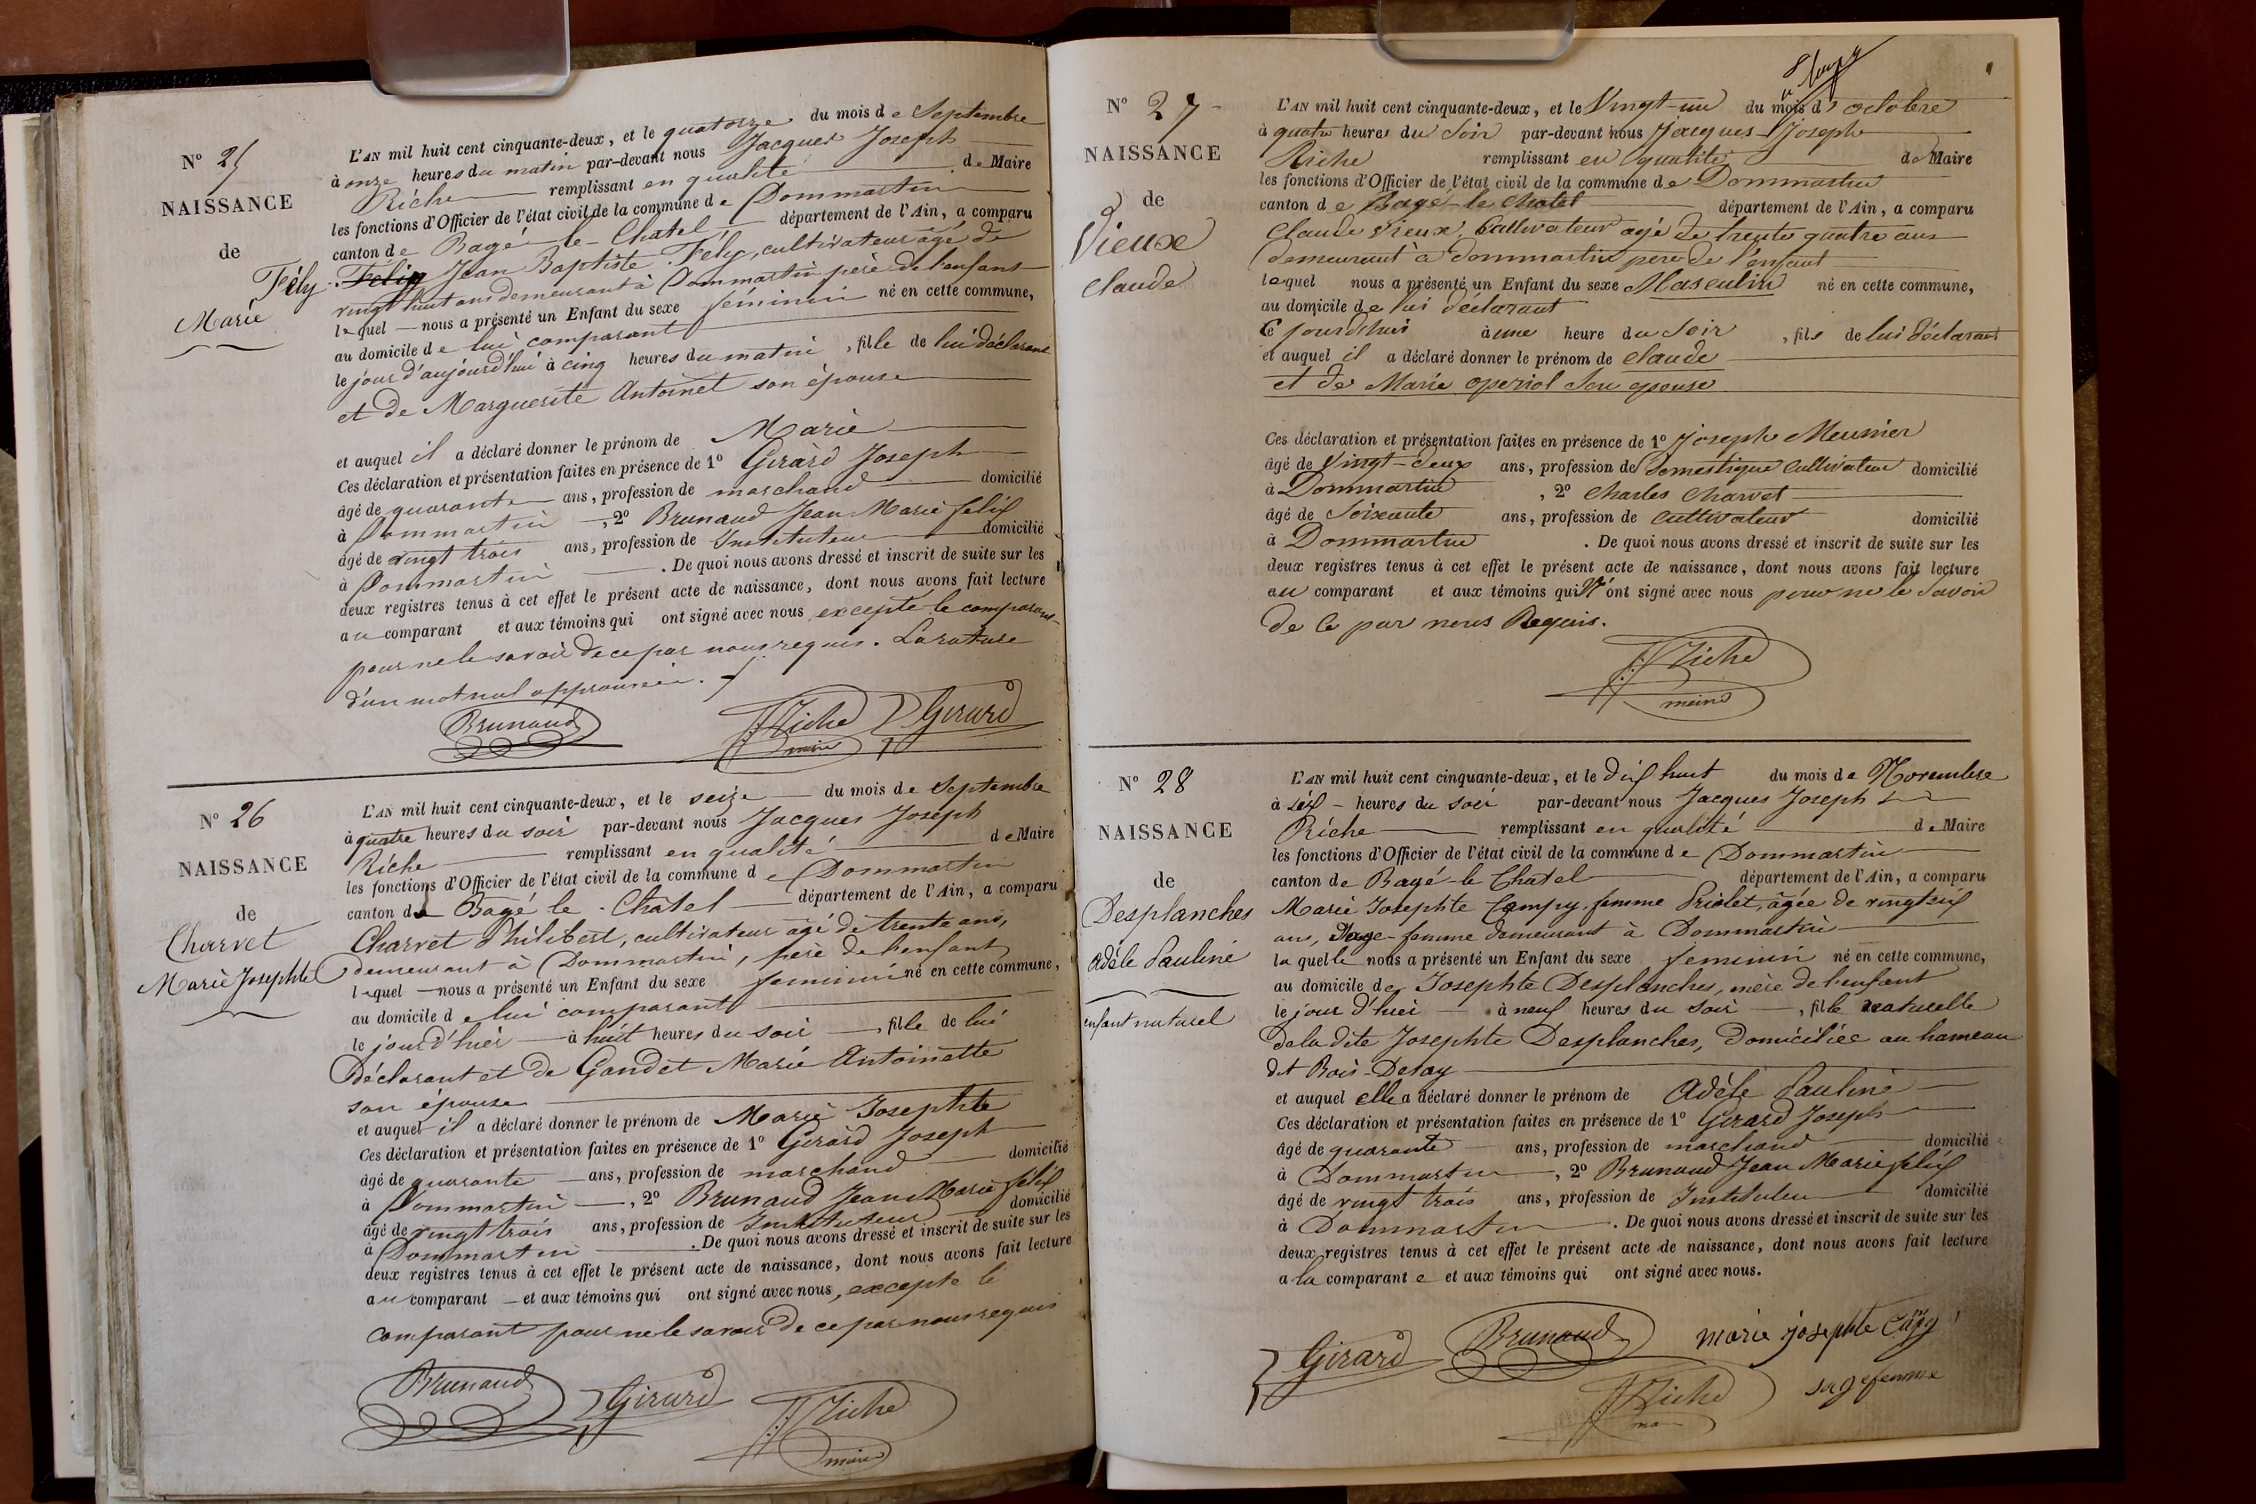 N° 25
NAISSANCE
de
Fély
Marie
L'AN mil huit cent cinquante-deux, et le quatorze du mois de Septembre
à onze heures du matin par-devant nous Jacques Joseph
Riche remplissant en qualité de Maire
les fonctions d'Officier de l'état civil de la commune de Dommartin
canton de Bagé-le-Chatel département de l'Ain, a comparu
Félix Jean Baptiste Fély, cultivateur âgé de
vingt huit ans demeurant à Dommartin père de l'enfant
lequel nous a présenté un Enfant du sexe féminin né en cette commune,
au domicile de lui comparant
le jour d'aujourd'hui à cinq heures du matin, fille de lui déclarant
et de Marguerite Antoinet son épouse
et auquel il a déclaré donner le prénom de Marie
Ces déclaration et présentation faites en présence de 1° Girard Joseph
âgé de quarante ans, profession de marchand domicilié
à Dommartin, 2° Brunaud Jean Marie félix
âgé de vingt trois ans, profession de Instituteur domicilié
à Dommartin. De quoi nous avons dressé et inscrit de suite sur les
deux registres tenus à cet effet le présent acte de naissance, dont nous avons fait lecture
au comparant et aux témoins qui ont signé avec nous excepté le comparant
pour ne le savoir de ce par nous requis. La rature
d'un mot nul approuvée.
Brunaud
Riche
maire
Girard
N° 26
NAISSANCE
de
Charvet
Marie Josephte
L'AN mil huit cent cinquante-deux, et le seize du mois de Septembre
à quatre heures du soir par-devant nous Jacques Joseph
Riche remplissant en qualité de Maire
les fonctions d'Officier de l'état civil de la commune de Dommartin
canton de Bagé le Châtel département de l'Ain, a comparu
Charvet Philibert, cultivateur âgé de trente ans,
demeurant à Dommartin, père de l'enfant
lequel nous a présenté un Enfant du sexe féminin né en cette commune,
au domicile de lui comparant
le jour d'hier à huit heures du soir, fille de lui
déclarant et de Gandet Marie Antoinette
son épouse
et auquel il a déclaré donner le prénom de Marie Josephte
Ces déclaration et présentation faites en présence de 1° Girard Joseph
âgé de quarante ans, profession de marchand domicilié
à Dommartin, 2° Brunaud Jean Marie félix
âgé de vingt trois ans, profession de Instituteur domicilié
à Dommartin. De quoi nous avons dressé et inscrit de suite sur les
deux registres tenus à cet effet le présent acte de naissance, dont nous avons fait lecture
au comparant et aux témoins qui ont signé avec nous, excepte le
comparant pour ne le savoir de ce par nous requis
Brunaud
Girard
Riche
maire
N° 27
NAISSANCE
de
Vieux
claude
L'AN mil huit cent cinquante-deux, et le Vingt-un du mois d'octobre
à quatre heures du Soir par-devant nous Jacques-Joseph
Riche remplissant en qualité de Maire
les fonctions d'Officier de l'état civil de la commune de Dommartin
canton de Bagé-le Chatel département de l'Ain, a comparu
Claude Vieux, Cultivateur agé de trente quatre ans
demeurant à Dommartin pere de l'enfant
lequel nous a présenté un Enfant du sexe Masculin né en cette commune,
au domicile de lui déclarant
Ce jourdhui à une heure du Soir, fils de lui déclarant
et auquel il a déclaré donner le prénom de claude
et de Marie operiol son epouse
Ces déclaration et présentation faites en présence de 1° Joseph Meunier
âgé de Vingt-deux ans, profession de domestique Cultivateur domicilié
à Dommartin, 2° Charles Charvet
âgé de Soixante ans, profession de Cultivateur domicilié
à Dommartin. De quoi nous avons dressé et inscrit de suite sur les
deux registres tenus à cet effet le présent acte de naissance, dont nous avons fait lecture
au comparant et aux témoins qui N'ont signé avec nous pour ne le Savoir
de Ce par nous Requis.
Riche
maire
N° 28
NAISSANCE
de
Desplanches
Adèle Pauline
enfant naturel
L'AN mil huit cent cinquante-deux, et le dix huit du mois de Novembre
à six heures du soir par-devant nous Jacques Joseph
Riche remplissant en qualité de Maire
les fonctions d'Officier de l'état civil de la commune de Dommartin
canton de Bagé-le Chatel département de l'Ain, a comparu
Marie Josephte Campy, femme Priolet, âgée de vingt six
ans, sage-femme demeurant à Dommartin
laquelle nous a présenté un Enfant du sexe feminin né en cette commune,
au domicile de Josephte Desplanches, mère de l'enfant
le jour d'hier à neuf heures du soir, fille naturelle
de la dite Josephte Desplanches, domiciliée au hameau
dit Bois-Delay
et auquel elle a déclaré donner le prénom de Adèle Pauline
Ces déclaration et présentation faites en présence de 1° Girard Joseph
âgé de quarante ans, profession de marchand domicilié
à Dommartin, 2° Brunaud Jean Marie félix
âgé de vingt trois ans, profession de Instituteur domicilié
à Dommartin. De quoi nous avons dressé et inscrit de suite sur les
deux registres tenus à cet effet le présent acte de naissance, dont nous avons fait lecture
a la comparante et aux témoins qui ont signé avec nous.
Girard
Brunaud
marie josephte
Riche
sagefemme